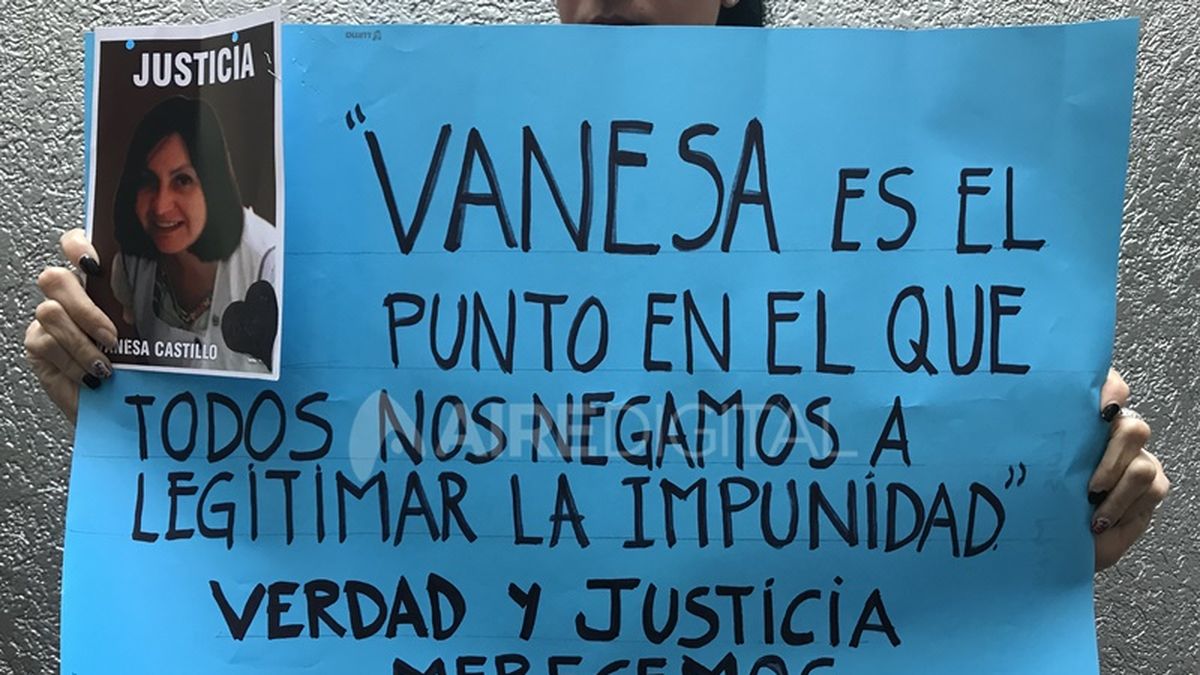 JUSTICIA
ANESA CASTILLO
"VANESA ES EL
PUNTO EN EL QUE
TODOS NOS NEGAMOS A
LEGITIMAR LA IMPUNIDAD."
VERDAD Y JUSTICIA
MERECEMOS
AIREDIGITAL